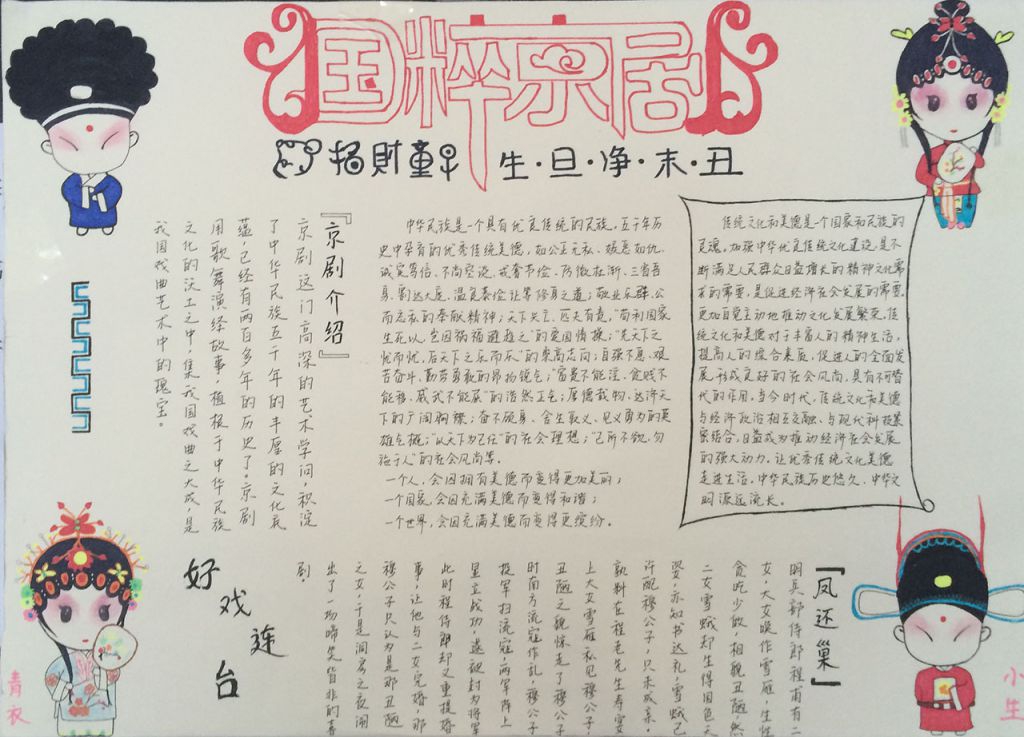 国粹京居
招財童子
生·旦·净·末·丑
『京剧介绍』
京剧这门高深的艺术学问,积淀
了中华民族五千年的丰厚的文化底
蕴,已经有两百多年的历史了,京剧
用歌舞演绎故事,植根于中华民族
文化的沃土之中,集我国戏曲之大成,是
我国戏曲艺术中的瑰宝。
中华民族是一个具有优良传统的民族,五千年历
史中孕育的优秀传统美德,如公正无私、嫉恶如仇、
诚实笃信、不尚空谈、戒奢节俭、防微杜渐、三省吾
身、豁达大度、温良恭俭让等修身之道;敬业乐群、公
而忘私的奉献精神;天下兴亡、匹夫有责,“苟利国家
生死以,岂因祸福避趋之”的爱国情操;“先天下之
忧而忧,后天下之乐而乐”的崇高志向;自强不息、艰
苦奋斗、勤劳勇敢的昂扬锐气;“富贵不能淫、贫贱不
能移、威武不能屈”的浩然正气;厚德载物、达济天
下的广阔胸襟;奋不顾身、舍生取义、见义勇为的英
雄气概;“以天下为己任”的社会理想;“己所不欲,勿
施于人”的社会风尚等。
一个人,会因拥有美德而变得更加美丽;
一个国家,会因充满美德而变得和谐;
一个世界,会因充满美德而变得更缤纷。
传统文化和美德是一个国家和民族的
灵魂,加强中华优良传统文化建设,是不
断满足人民群众日益增长的精神文化需
求的需要,是促进经济社会发展的需要。
更加自觉主动地推动文化发展繁荣,传
统文化和美德对于丰富人的精神生活,
提高人的综合素质,促进人的全面发
展,形成良好的社会风尚,具有不可替
代的作用,当今时代,传统文化和美德
与经济政治相互交融、与现代科技紧
密结合,日益成为推动经济社会发展
的强大动力,让优秀传统文化美德
走进生活,中华民族历史悠久、中华文
明源远流长。
好戏连台
『凤还巢』
明兵部侍郎程甫有二
女,大女唤作雪雁,生性
贪吃少做,相貌丑陋,然
二女雪娥却生得国色天
姿,亦知书达礼,雪娥已
许配穆公子,只未成亲,
孰料在程老先生寿宴
上大女雪雁私见穆公子,
丑陋之貌惊走了穆公子,
时南方流寇作乱,穆公子
投军扫流寇,两军阵上
屡立战功,遂被封为将军
此时程侍郎却又重提婚
事,让他与二女完婚,那
穆公子只认为是那丑陋
之女,于是洞房之夜闹
出了一场啼笑皆非的喜
剧
青衣
小生